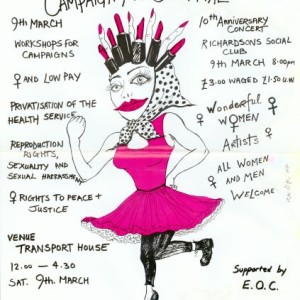 9th MARCH
WORKSHOPS FOR
CAMPAIGNS
♀ AND LOW PAY
PRIVATISATION OF THE
HEALTH SERVICE
REPRODUCTION
RIGHTS,
SEXUALITY AND
SEXUAL HARRASSMENT
♀ RIGHTS TO PEACE +
JUSTICE
VENUE
TRANSPORT HOUSE
12.00 — 4.30
SAT. 9th. MARCH
10th ANNIVERSARY
CONCERT
RICHARDSONS SOCIAL
CLUB
9th MARCH 8:00pm
£3.00 WAGED £1.50 U.W
Wonderful
WOMEN
Artists
ALL WOMEN
AND MEN
WELCOME
Supported by
E.O.C.